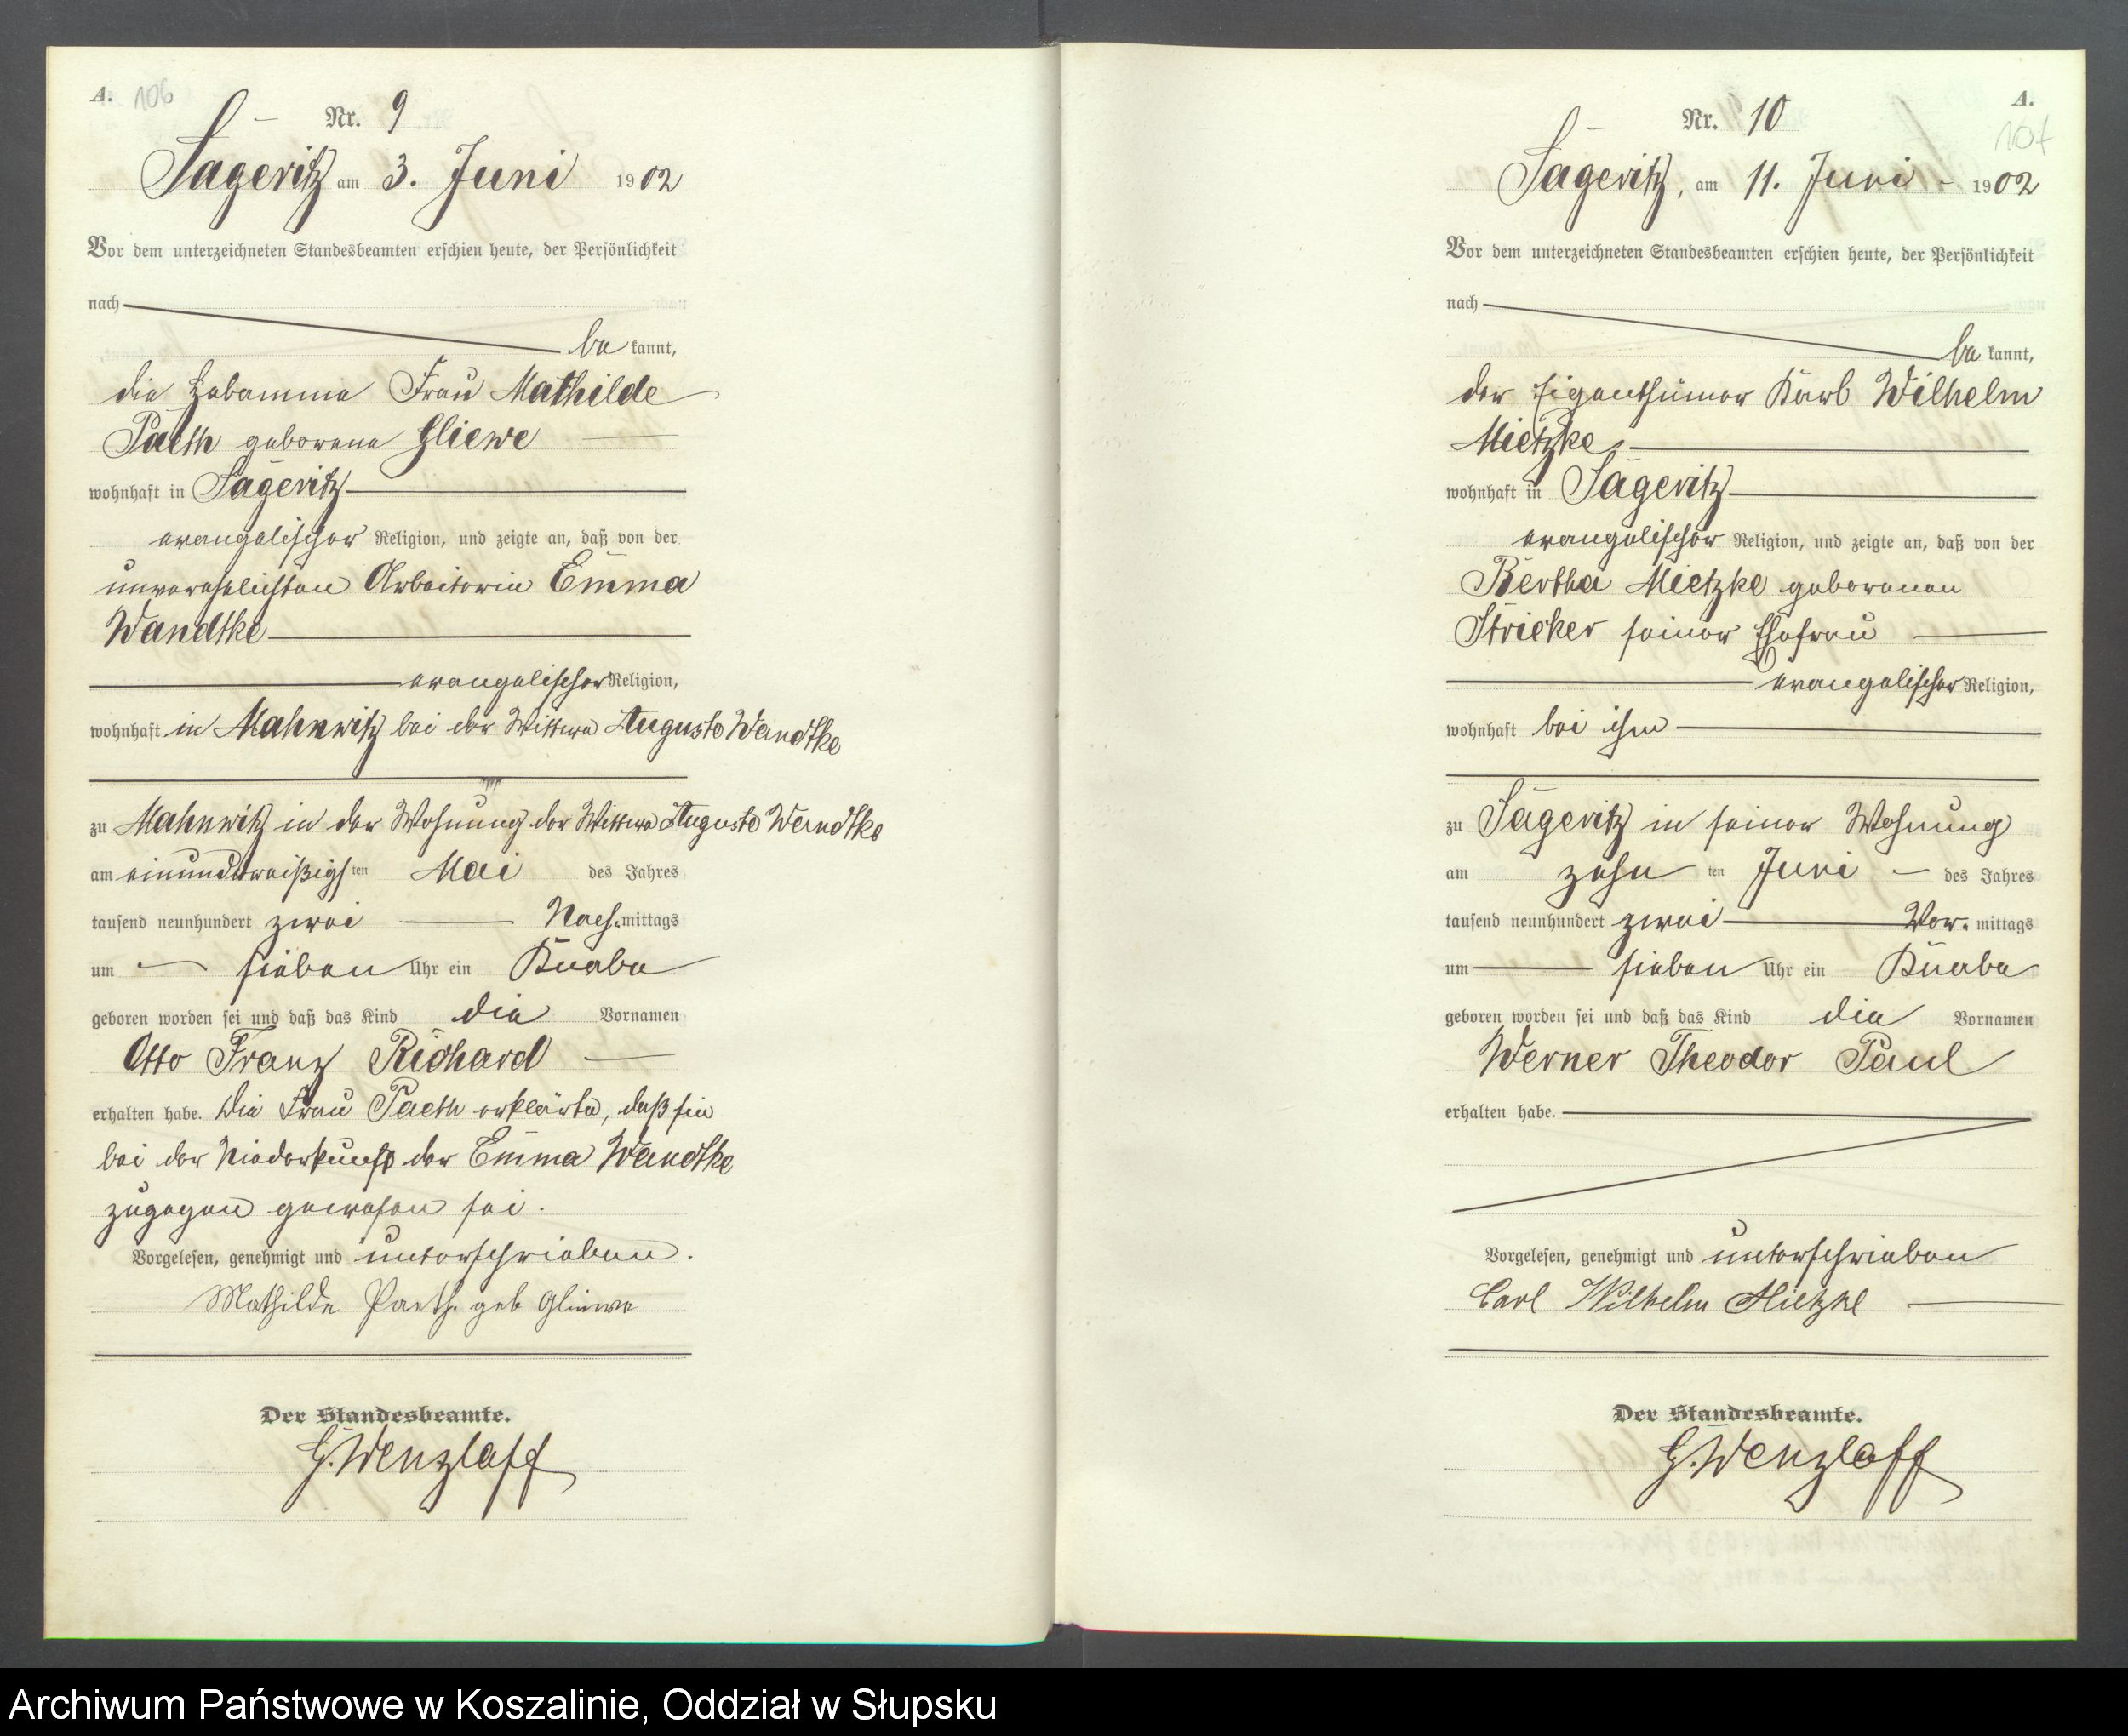 A. 106
Nr. 9
Sageritz am 3. Juni 1902
Vor dem unterzeichneten Standesbeamten erschien heute, der Persönlichkeit
nach
be kannt,
die Hebamme Frau Mathilde
Paeth geborene Gliewe
wohnhaft in Sageritz
evangelischer Religion, und zeigte an, daß von der
unverehelichten Arbeiterin Emma
Wandtke
evangelischer Religion,
wohnhaft in Mahnwitz bei der Wittwe Auguste Wandtke
zu Mahnwitz in der Wohnung der Wittwe Auguste Wandtke
am einunddreißigsten Mai des Jahres
tausend neunhundert zwei Nachmittags
um sieben Uhr ein Knabe
geboren worden sei und daß das Kind die Vornamen
Otto Franz Richard
erhalten habe. Die Frau Paeth erklärte, daß sie
bei der Niederkunft der Emma Wandtke
zugegen gewesen sei.
Vorgelesen, genehmigt und unterschrieben.
Mathilde Paeth. geb Gliewe
Der Standesbeamte.
G. Wenzlaff
A.
107
Nr. 10
Sageritz, am 11. Juni 1902
Vor dem unterzeichneten Standesbeamten erschien heute, der Persönlichkeit
nach
be kannt,
der Eigenthümer Karl Wilhelm
Mietzke,
wohnhaft in Sageritz
evangelischer Religion, und zeigte an, daß von der
Bertha Mietzke geborenen
Stricker seiner Ehefrau
evangelischer Religion,
wohnhaft bei ihm
zu Sageritz in seiner Wohnung
am zehn ten Juni des Jahres
tausend neunhundert zwei Vor. mittags
um sieben Uhr ein Knabe
geboren worden sei und daß das Kind die Vornamen
Werner Theodor Paul
erhalten habe.
Vorgelesen, genehmigt und unterschrieben
Carl Wilhelm Mietzke
Der Standesbeamte.
G. Wenzlaff
Archiwum Państwowe w Koszalinie, Oddział w Słupsku